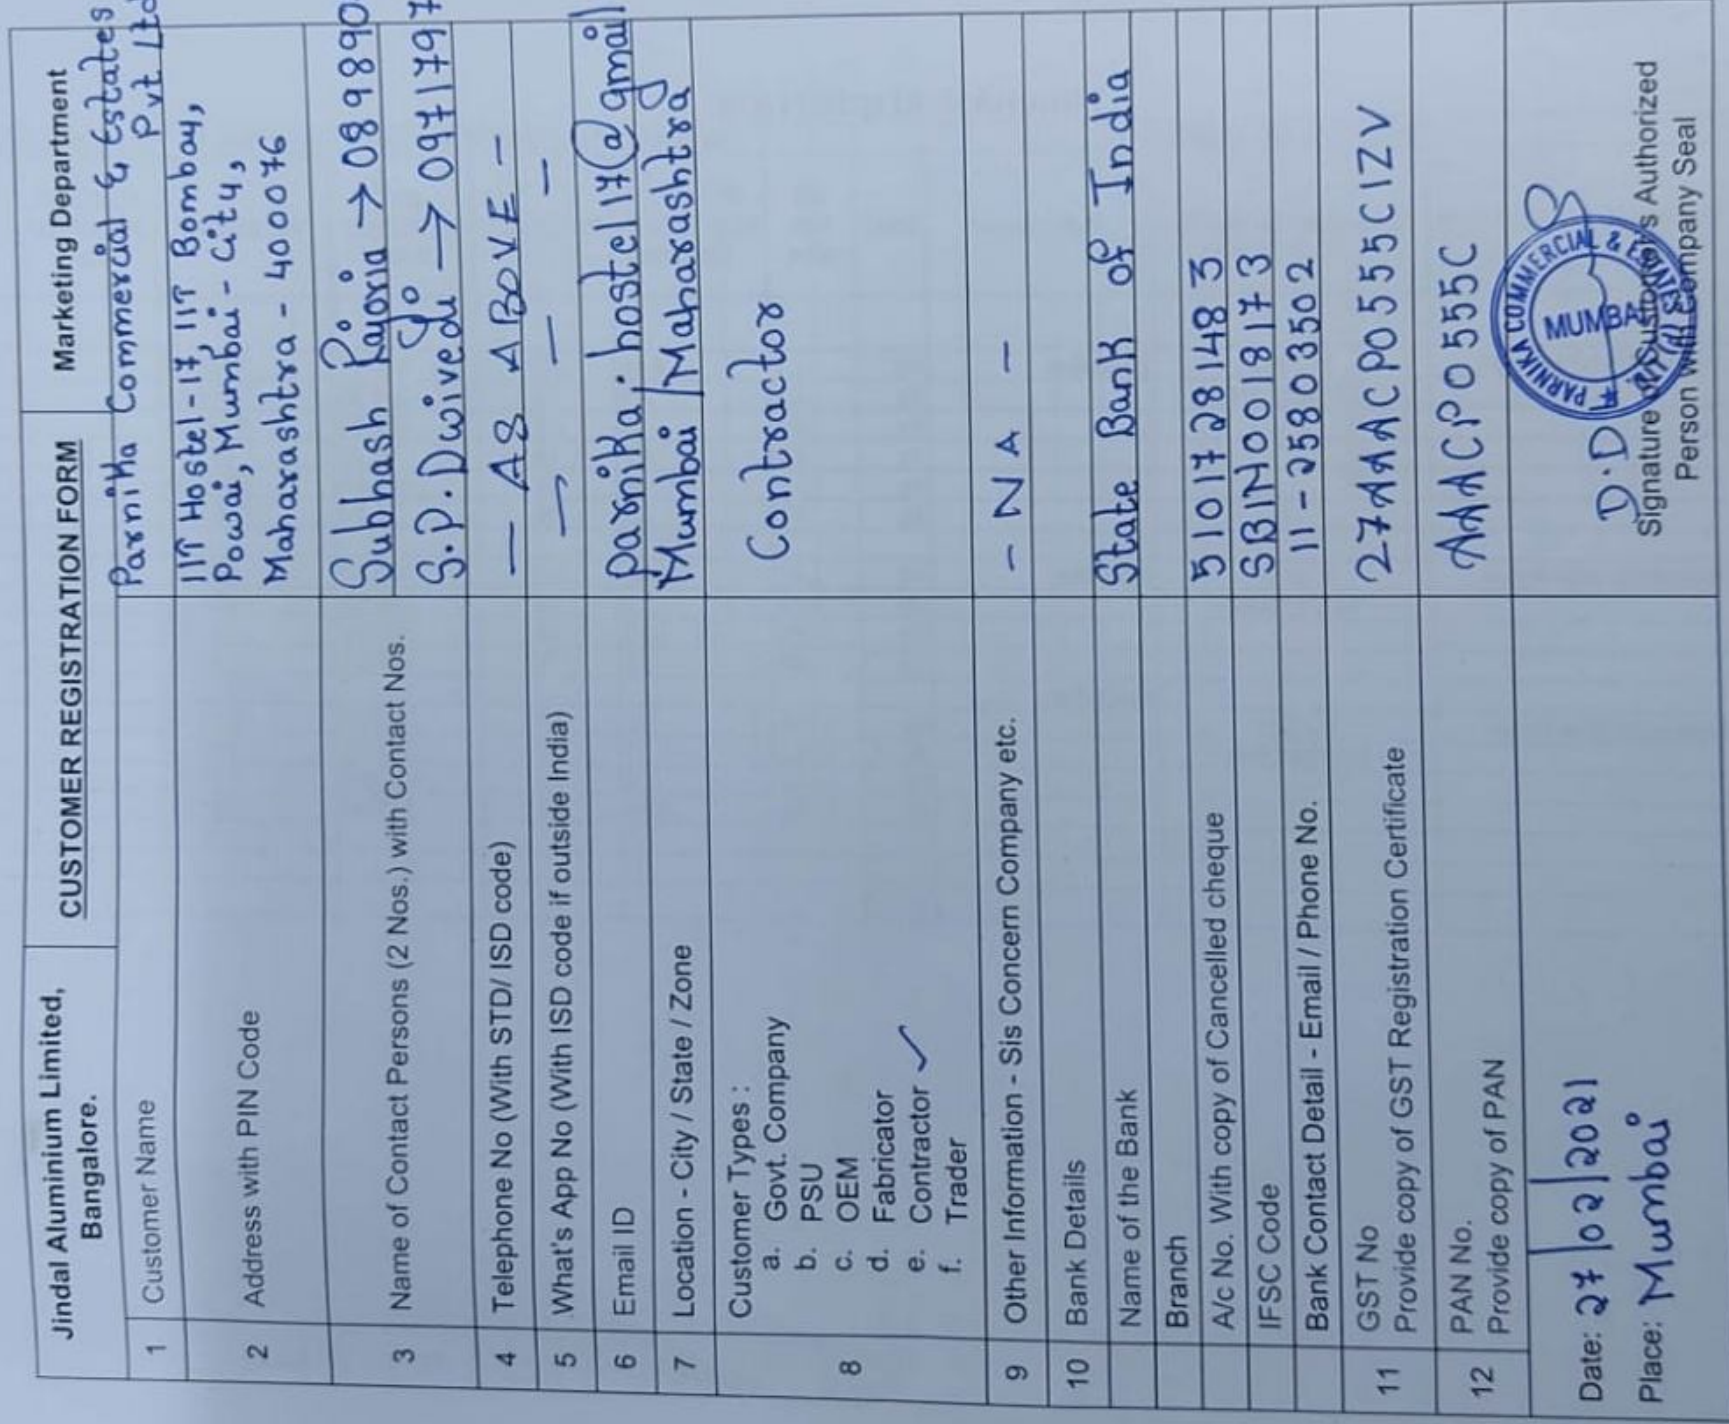 Jindal Aluminium Limited,
Bangalore.
CUSTOMER REGISTRATION FORM
Marketing Department
1 Customer Name Parnika Commercial & Estates
Pvt Ltd
2 Address with PIN Code IIT Hostel-17, IIT Bombay,
Powai, Mumbai - City,
Maharashtra - 400076
3 Name of Contact Persons (2 Nos.) with Contact Nos. Subhash Pajoria → 0898890
S.P. Dwivedi → 0971797
4 Telephone No (With STD/ ISD code) — AS ABOVE —
5 What's App No (With ISD code if outside India) — — —
6 Email ID parnika.hostel17@gmail
7 Location - City / State / Zone Mumbai / Maharashtra
8 Customer Types : Contractor
a. Govt. Company
b. PSU
c. OEM
d. Fabricator
e. Contractor ✓
f. Trader
9 Other Information - Sis Concern Company etc. - NA -
10 Bank Details
Name of the Bank State Bank of India
Branch
A/c No. With copy of Cancelled cheque 51017281483
IFSC Code SBIN0018173
Bank Contact Detail - Email / Phone No. 11-25803502
11 GST No 27AAACP0555C1ZV
Provide copy of GST Registration Certificate
12 PAN No. AAACP0555C
Provide copy of PAN
Date: 27/02/2021
Place: Mumbai
D.D
PARNIKA COMMERCIAL & ESTATES
MUMBAI
Signature of Customer's Authorized
Person with Company Seal